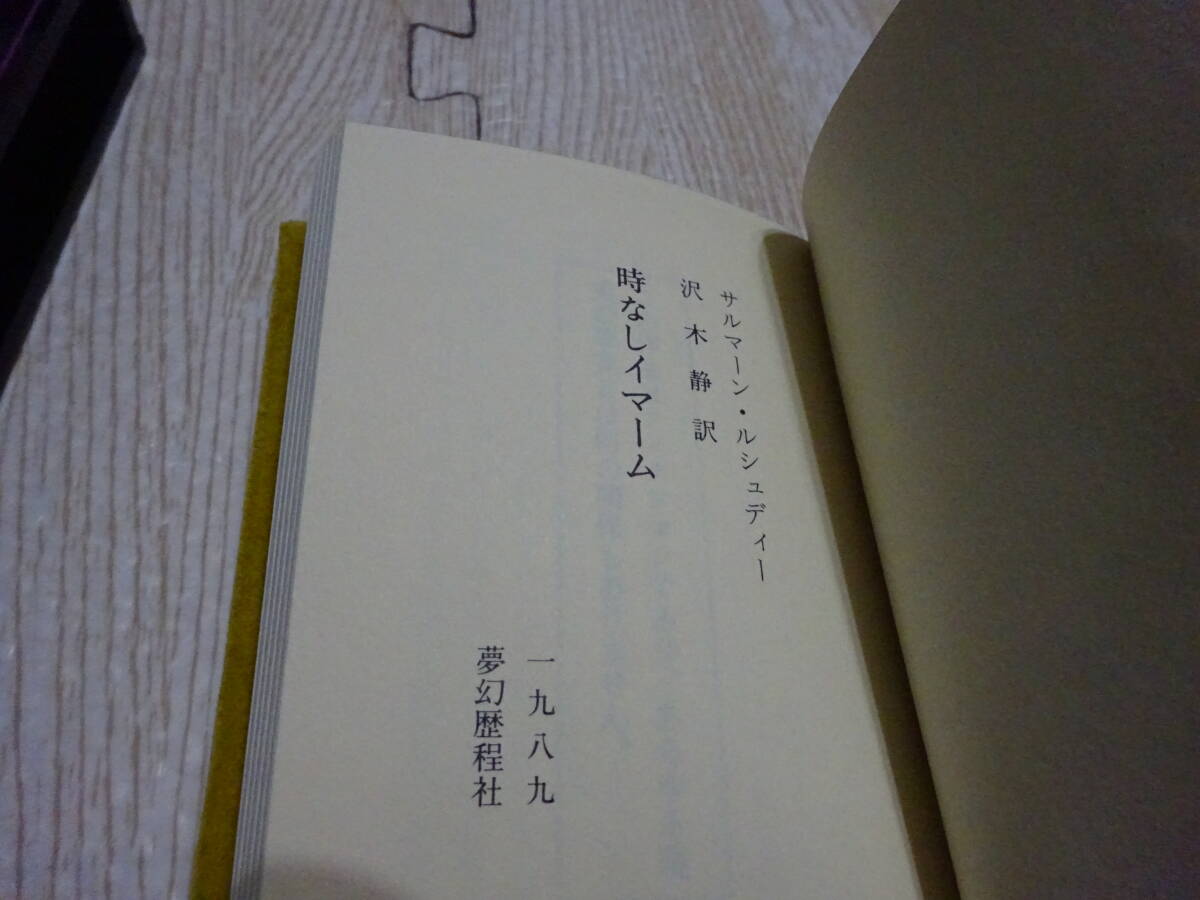 サルマーン・ルシュディー
沢木静訳
時なしイマーム
一九八九
夢幻歴程社